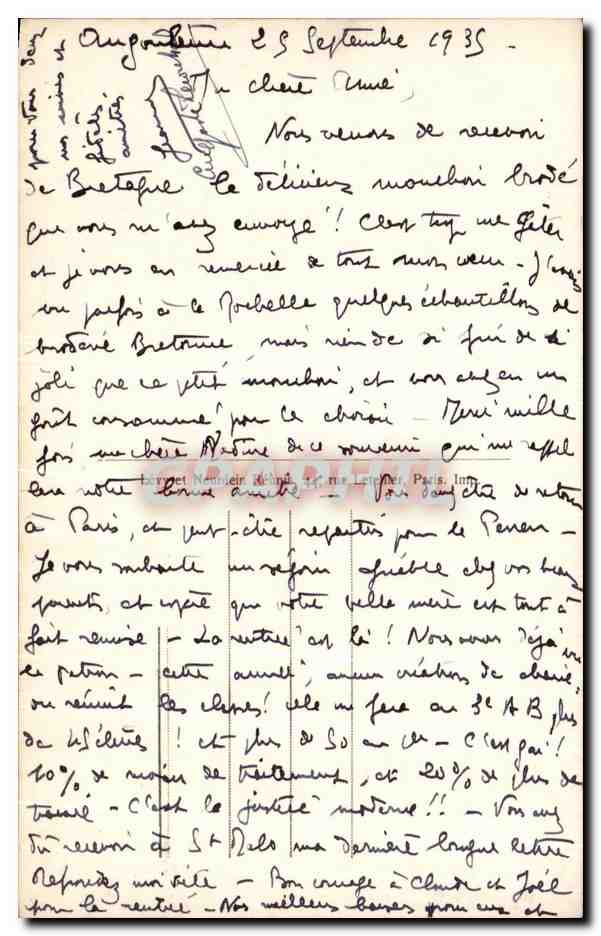 Angoulême 25 Septembre 1935 -
Ma chère Aimée,
Nous venons de recevoir
de Bretagne le délicieux mouchoir brodé
que vous m'avez envoyé ! C'est trop me gâter
et je vous en remercie de tout mon cœur - J'avais
vu parfois à La Rochelle quelques échantillons de
broderie Bretonne, mais rien de si fin de si
joli que ce petit mouchoir, et vous avez eu un
goût consommé pour le choisir - Merci mille
fois ma chère de ce souvenir qui me rappel
lera votre bonne amitié - Vous devez être de retour
Lévy et Neurdein Réunis, 44, rue Letellier, Paris. Imp.
à Paris, et peut-être repartis pour le
Je vous souhaite un séjour agréable chez vos beaux
parents, et espère que votre belle mère est tout à
fait remise - La rentrée est là ! Nous avons déjà vu
le patron - cette année, aucune création de chaire,
on réunit les classes ! cela me fera en 3e A B plus
de 45 élèves ! et plus de 50 en - C'est gai !
10% de moins de traitement, et 20% de plus de
travail - C'est la justice moderne !! - Vous avez
dû recevoir à St Malo ma dernière longue lettre
Répondez moi vite - Bon courage à Claude et Joël
pour la rentrée - Nos meilleurs baisers pour eux et
pour vous deux
nos et
fidèles
amitiés